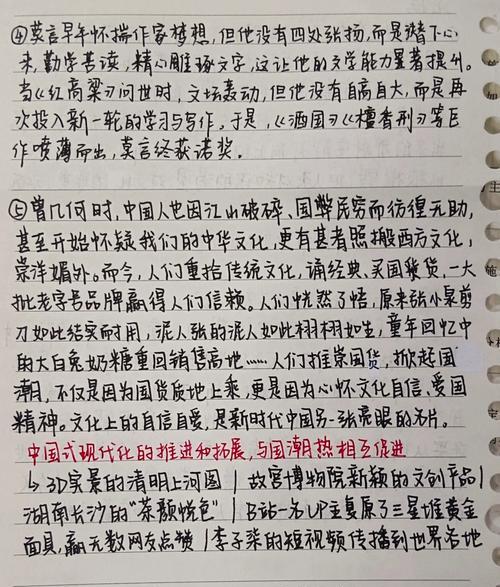 ④莫言早年怀揣作家梦想，但他没有四处张扬，而是潜下心
来，勤学苦读，精心雕琢文字，这让他的文学能力显著提升。
当《红高粱》问世时，文坛轰动，但他没有自高自大，而是再
次投入新一轮的学习与写作。于是，《酒国》《檀香刑》等巨
作喷薄而出，莫言终获诺奖。
⑤曾几何时，中国人也因江山破碎、国弊民穷而彷徨无助，
甚至开始怀疑我们的中华文化，更有甚者照搬西方文化，
崇洋媚外。而今，人们重拾传统文化，诵经典、买国货，一大
批老字号品牌赢得人们信赖。人们恍然了悟，原来张小泉剪
刀如此结实而耐用，泥人张的泥人如此栩栩如生，童年回忆中
的大白兔奶糖重回销售高地……人们推崇国货，掀起国
潮，不仅是因为国货质地上乘，更是因为心怀文化自信、爱国
精神。文化上的自信自爱，是新时代中国另一张亮眼的名片。
中国式现代化的推进和拓展，与国潮热相互促进
↳3D实景的清明上河图｜故宫博物院新颖的文创产品｜
湖南长沙的"茶颜悦色"｜B站一名UP主复原了三星堆黄金
面具，赢无数网友点赞｜李子柒的短视频传播到世界各地